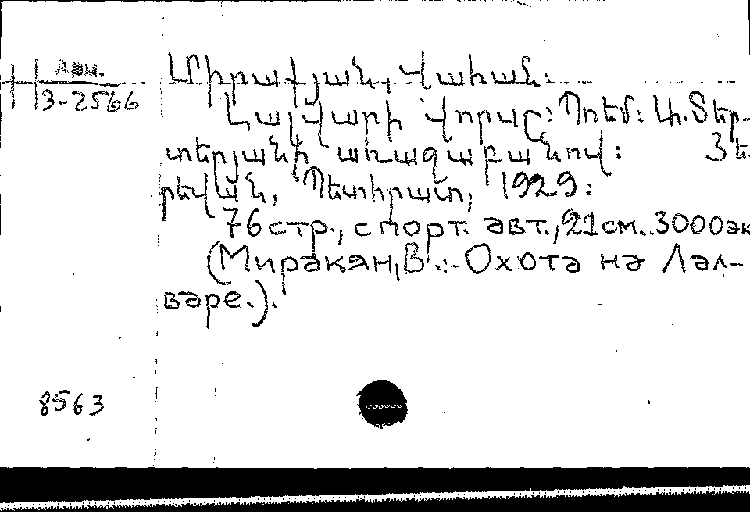 Арм.
3-2566
Միրաքյան, Վահան.
Լալվարի վորսը: Պոեմ: Առ. Տեր-
տերյանի առաջաբանով: Յե-
րեվան, Պետհրատ, 1929:
76 стр., с порт. авт., 21 см. 3000 эк
(Миракян, В.:- Охота на Лал-
варе.).
8563